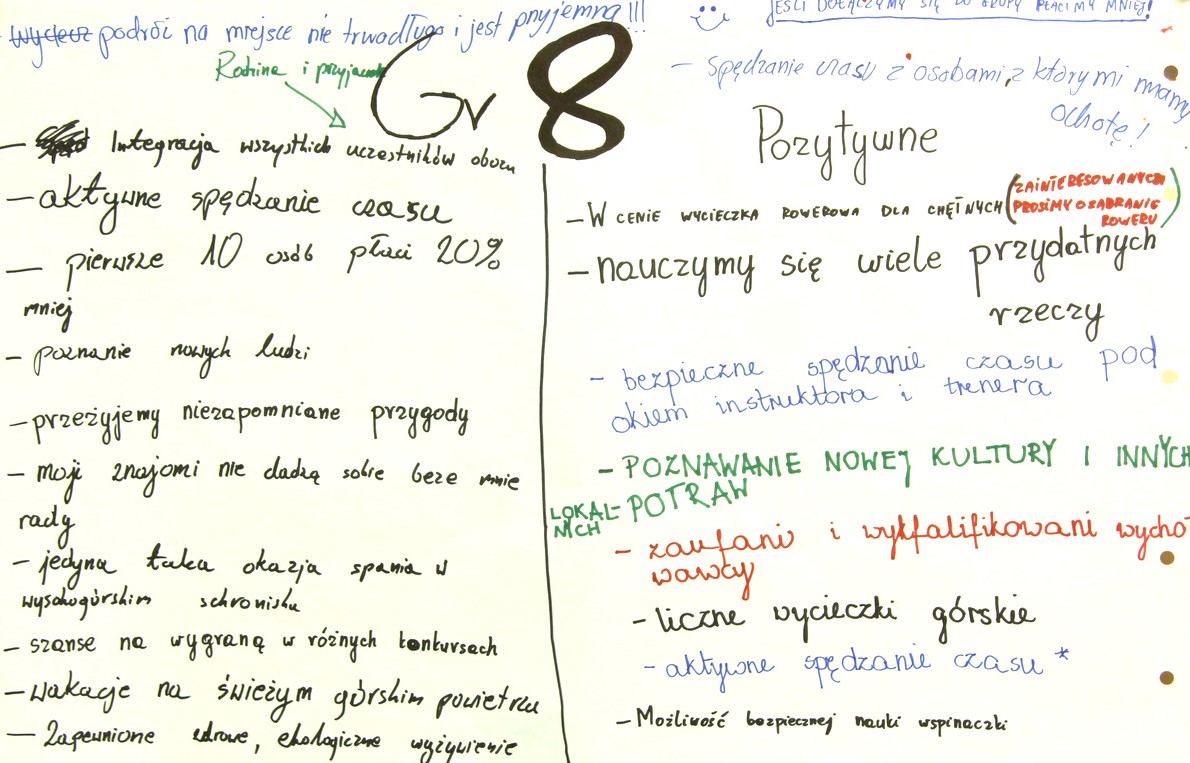 podróż na miejsce nie trwa długo i jest przyjemną !!!
Rodzina i przyjaciele
Gr 8
- Integracja wszystkich uczestników obozu
- aktywne spędzanie czasu
- pierwsze 10 osób płaci 20%
mniej
- poznanie nowych ludzi
- przeżyjemy niezapomniane przygody
- moji znajomi nie dadzą sobie beze mnie
rady
- jedyna taka okazja spania w
wysokogórskim schronisku
- szanse na wygraną w różnych konkursach
- wakacje na świeżym górskim powietrzu
- Zapewnione zdrowe, ekologiczne wyżywienie
JEŚLI DOŁĄCZYMY SIĘ DO GRUPY PŁACIMY MNIEJ!
- spędzanie czasu z osobami, z którymi mamy
ochotę!
Pozytywne
- W CENIE WYCIECZKA ROWEROWA DLA CHĘTNYCH (ZAINTERESOWANYCH
PROSIMY O ZABRANIE
ROWERU)
- nauczymy się wiele przydatnych
rzeczy
- bezpieczne spędzanie czasu pod
okiem instruktora i trenera
- POZNAWANIE NOWEJ KULTURY I INNYCH
LOKAL-
NYCH POTRAW
- zaufani i wykfalifikowani wycho-
wawcy
- liczne wycieczki górskie
- aktywne spędzanie czasu *
- Możliwość bezpiecznej nauki wspinaczki